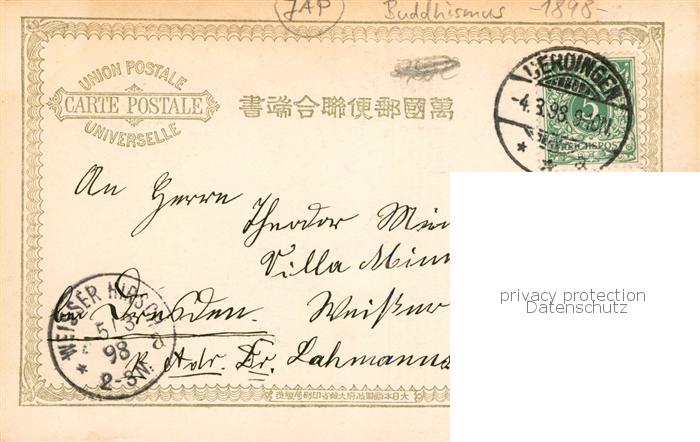 JAP Buddhismus -1898-
UNION POSTALE
CARTE POSTALE
UNIVERSELLE
書端合聯便郵國萬
UERDINGEN
-4.3.98.
5
REICHSPOST
An Herrn
Theodor
Villa
bei Dresden. Weißer
Adr. Dr. Lahmanns
WEISSER HIRSCH
5/3
98
2-3N.
a
privacy protection
Detlev Bork